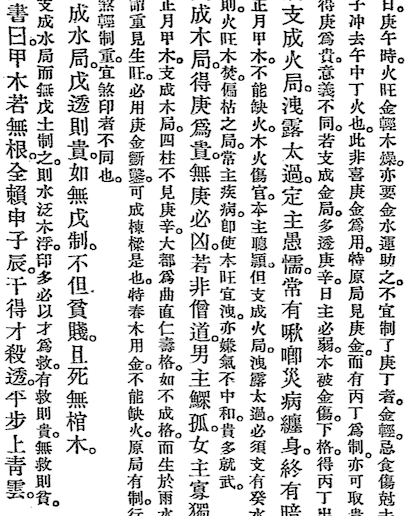 日。庚午時。火旺金輕木燥。亦要金水運助之。不宜制了庚丁者。金輕忌食傷尅去
子冲去午中丁火也。此非喜庚金爲用。特原局見庚金而有丙丁爲制。亦可取貴
得庚爲貴。意義不同。若支成金局。多透庚辛。日主必弱。木被金傷下格。得丙丁出
支成火局。洩露太過。定主愚懦。常有啾唧災病纏身。終有暗
正月甲木。不能缺火。木火傷官。本主聰頴。但支成火局。洩露太過。必須支有癸水
則火旺木焚。偏枯之局。常主疾病。卽使木旺宜洩。亦嫌氣不中和。貴多就武。
成木局。得庚爲貴。無庚必凶。若非僧道。男主鰥孤。女主寡獨
正月甲木。支成木局。四柱不見庚辛。大都爲曲直仁壽格。如不成格。而生於雨水
謂重見生旺。必用庚金斵鑿。可成棟樑是也。特春木用金。不能缺火。原局有制。行
煞輕制重。宜煞印者不同也。
成水局。戊透則貴。如無戊制。不但貧賤。且死無棺木。
支成水局而無戊土制之。則水泛木浮。印多必以才爲救。有救則貴。無救則貧。
書曰。甲木若無根。全賴申子辰。干得才殺透。平步上青雲。